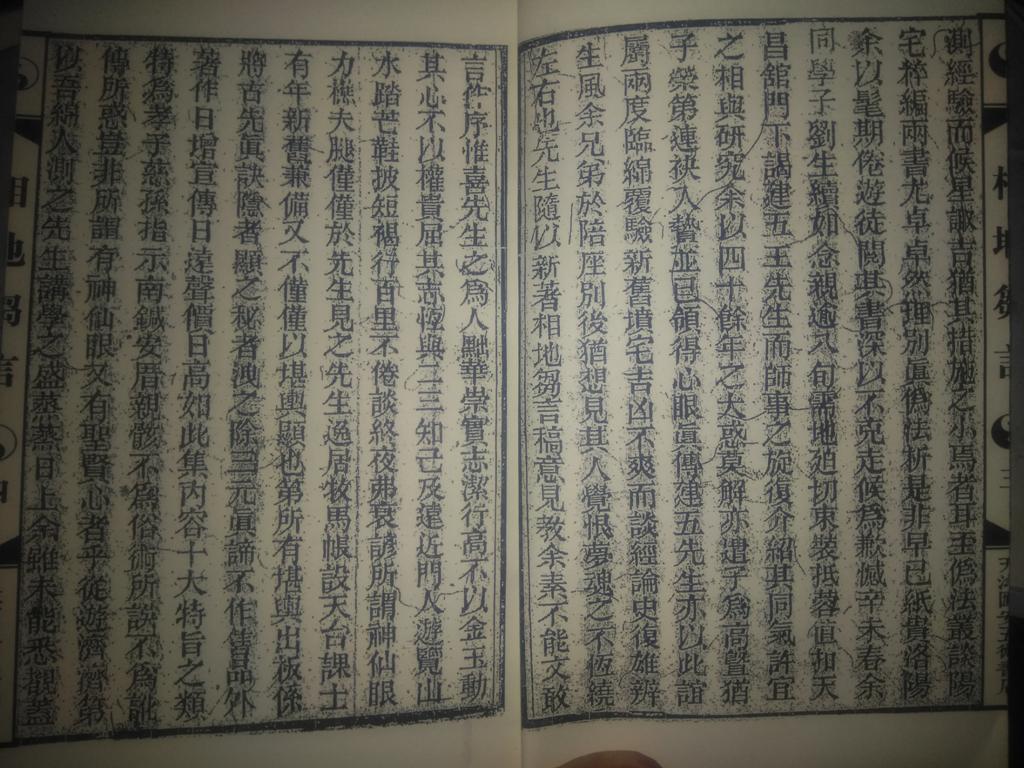 測經驗而候星諏吉猶其措施之小焉者耳至僞法叢談陽
宅粹編兩書尤卓卓然理別眞僞法析是非早已紙貴洛陽
余以髦期倦遊徒閱其書深以不克走候爲歉憾辛未春余
同學子劉生續如念親逾八旬需地廹切束裝抵蓉直扣天
昌舘門下謁建五王先生而師事之旋復介紹其同氣許宜
之相與硏究余以四十餘年之大惑莫解亦遣子爲高聲猶
子榮第連袂入贄並已領得心眼眞傳建五先生亦以此誼
屬兩度臨綿覆驗新舊墳宅吉凶不爽而談經論史復雄辨
生風余兄弟於陪座別後猶想見其人覺恨夢魂之不恆繞
左右也先生隨以新著相地芻言稿意見敎余素不能文敢
言作序惟喜先生之爲人黜華崇實志潔行高不以金玉動
其心不以權貴屈其志恆與二三知己及遠近門人遊覽山
水踏芒鞋披短褐行百里不倦談終夜弗衰諺所謂神仙眼
力樵夫腿僅僅於先生見之先生過居牧馬帳設天台課士
有年新舊兼備又不僅僅以堪輿顯也第所有堪輿出板係
將古先眞訣隱者顯之秘者洩之除三元眞諦不作售品外
著作日增宣傳日遠聲價日高如此集內容十大特旨之類
特爲孝子慈孫指示南鍼安厝親骸不爲俗術所誤不爲訛
傳所惑豈非所謂有神仙眼又有聖賢心者乎從遊濟濟第
以吾綿人測之先生講學之盛蒸蒸日上余雖未能悉覩蓋
相地芻言
三
相地芻言
四